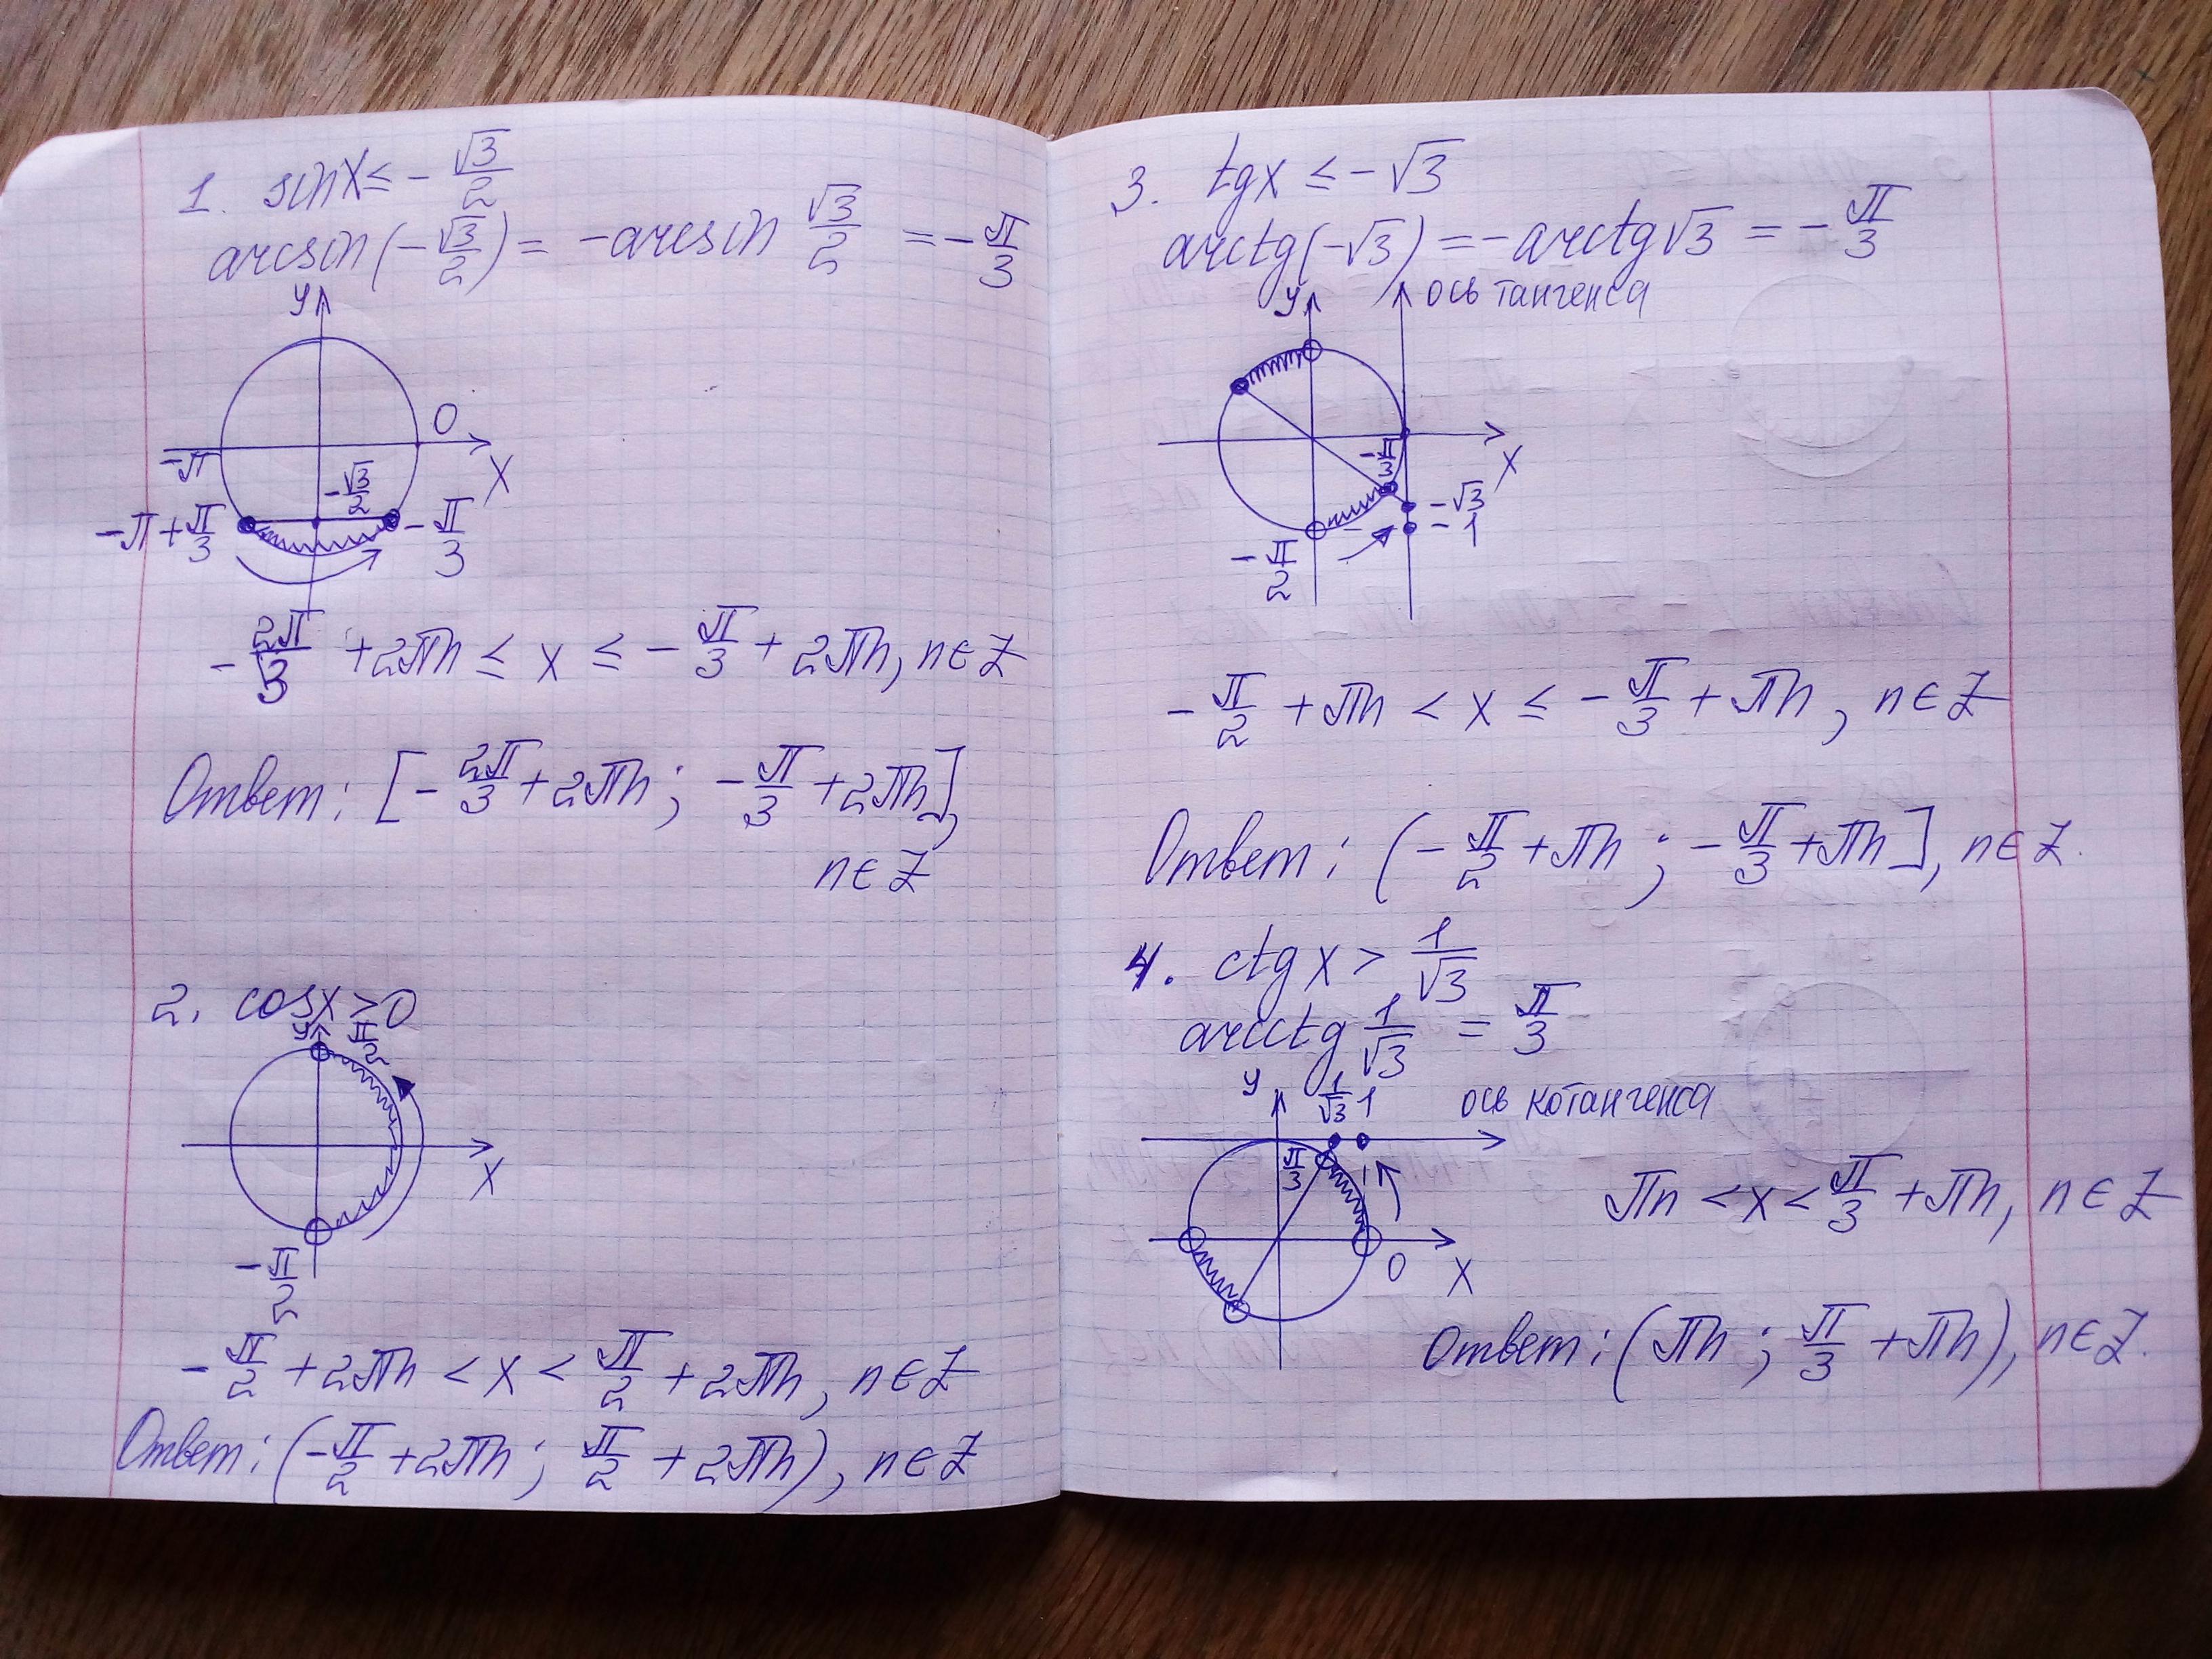 1. sinx ≤ -√3/2
arcsin(-√3/2) = -arcsin √3/2 = -π/3
y
0
-π
x
-√3/2
-π+π/3
-π/3
-2π/3 + 2πn ≤ x ≤ -π/3 + 2πn, n∈Z
Ответ: [-2π/3 + 2πn; -π/3 + 2πn],
n∈Z
2. cosx > 0
y
π/2
x
-π/2
-π/2 + 2πn < x < π/2 + 2πn, n∈Z
Ответ: (-π/2 + 2πn; π/2 + 2πn), n∈Z
3. tgx ≤ -√3
arctg(-√3) = -arctg√3 = -π/3
y
ось тангенса
-π/3
x
-√3
-1
-π/2
-π/2 + πn < x ≤ -π/3 + πn, n∈Z
Ответ: (-π/2 + πn; -π/3 + πn], n∈Z.
4. ctgx > 1/√3
arcctg 1/√3 = π/3
y
1/√3 1
ось котангенса
π/3
πn < x < π/3 + πn, n∈Z
0
x
Ответ: (πn; π/3 + πn), n∈Z.